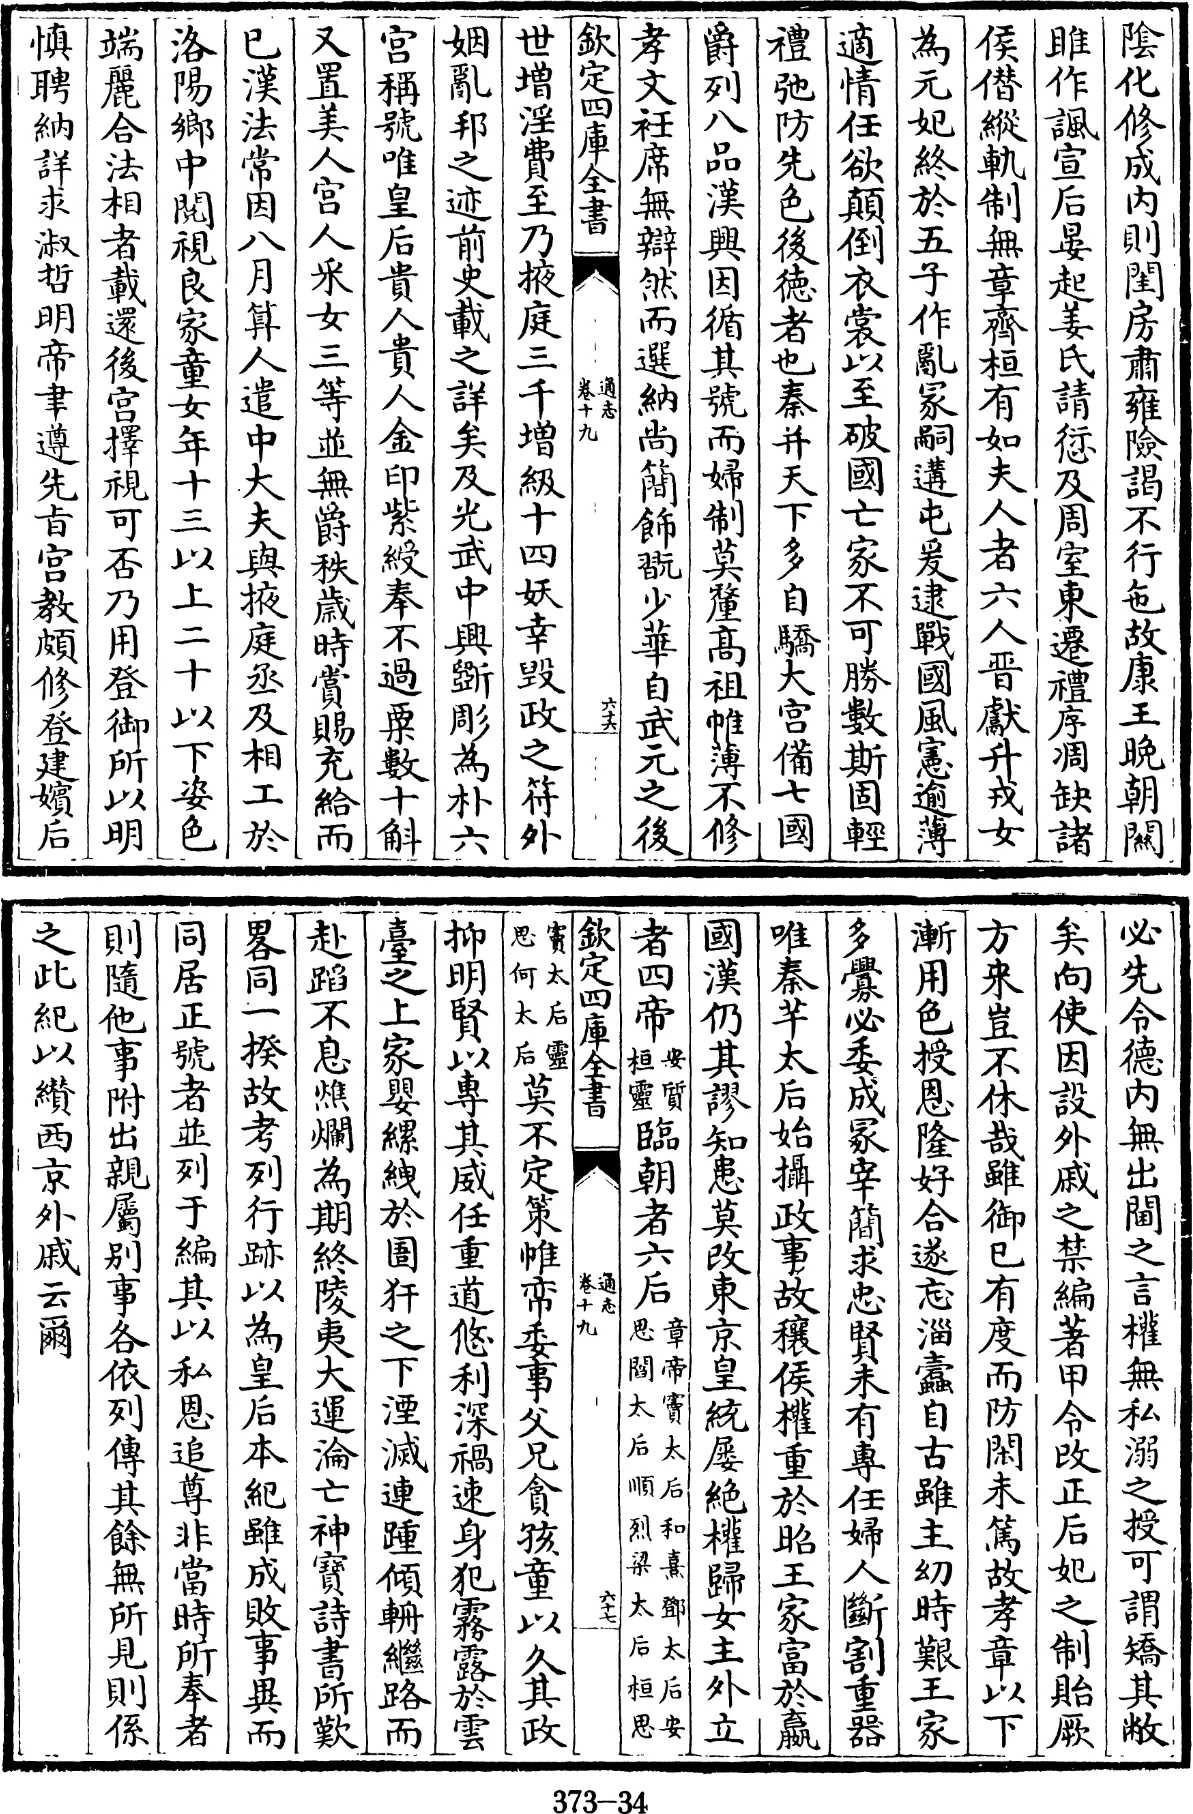 陰化修成内則閨房肅雍險謁不行也故康王晚朝關
雎作諷宣后晏起姜氏請愆及周室東遷禮序凋缺諸
侯僭縱軌制無章齊桓有如夫人者六人晋獻升戎女
為元妃終於五子作亂冢嗣遘屯爰逮戰國風憲逾薄
適情任欲顛倒衣裳以至破國亡家不可勝數斯固輕
禮弛防先色後徳者也秦并天下多自驕大宫備七國
爵列八品漢興因循其號而婦制莫釐髙祖帷薄不修
孝文袵席無辯然而選納尚簡飾翫少華自武元之後
欽定四庫全書
通志
卷十九
六十六
世增淫費至乃掖庭三千增級十四妖幸毁政之符外
姻亂邦之迹前史載之詳矣及光武中興斵彫為朴六
宫稱號唯皇后貴人貴人金印紫綬奉不過粟數十斛
又置美人宫人采女三等並無爵秩歲時賞賜充給而
已漢法常因八月算人遣中大夫與掖庭丞及相工於
洛陽鄉中閲視良家童女年十三以上二十以下姿色
端麗合法相者載還後宫擇視可否乃用登御所以明
慎聘納詳求淑哲明帝聿遵先旨宫教頗修登建嬪后
必先令徳内無出閫之言權無私溺之授可謂矯其敝
矣向使因設外戚之禁編著甲令改正后妃之制貽厥
方來豈不休哉雖御已有度而防閑未篤故孝章以下
漸用色授恩隆好合遂忘淄蠧自古雖主幼時艱王家
多釁必委成冢宰簡求忠賢未有專任婦人斷割重器
唯秦芊太后始攝政事故穰侯權重於昭王家富於嬴
國漢仍其謬知患莫改東京皇統屢絶權歸女主外立
者四帝安質桓靈臨朝者六后章帝竇太后和熹鄧太后安思閻太后順烈梁太后桓思
欽定四庫全書
通志
卷十九
六十七
竇太后靈思何太后莫不定策帷帟委事父兄貪孩童以久其政
抑明賢以專其威任重道悠利深禍速身犯霧露於雲
臺之上家嬰縲絏於圄犴之下湮滅連踵傾輈繼路而
赴蹈不息燋爛為期終陵夷大運淪亡神寶詩書所歎
畧同一揆故考列行跡以為皇后本紀雖成敗事異而
同居正號者並列于編其以私恩追尊非當時所奉者
則隨他事附出親屬别事各依列傳其餘無所見則係
之此紀以纉西京外戚云爾
373-34